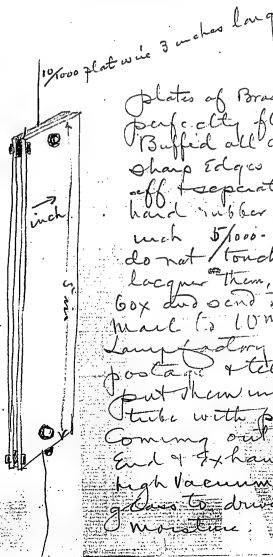 10/1000 plat wire 3 inches long
plates of Bras
perfectly fl
Buffed all
sharp Edges
off & seperat
hard rubber
inch 5/1000.
do not touch
lacquer them,
box and send
mail to
Lamp factory
postage & tel
put them in
tube with p
Coming out
End & Exhau
high Vacuum
glass to driv
moisture.
inch
5 in